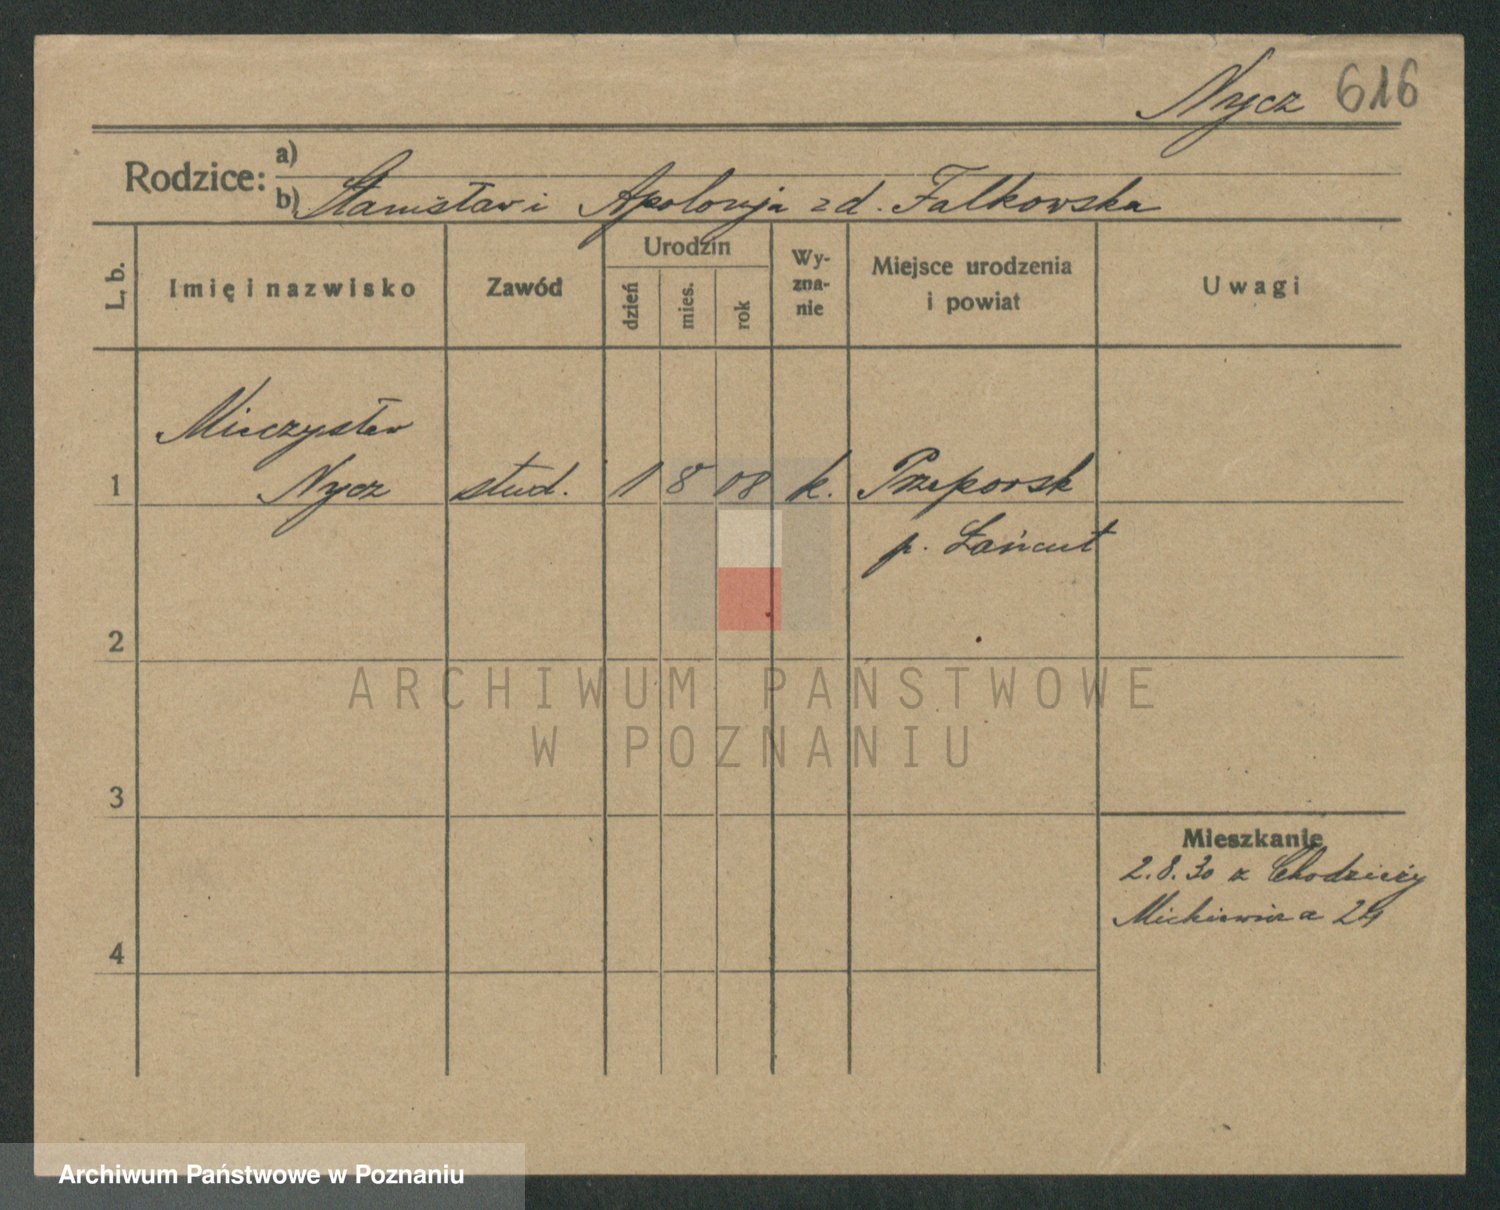 Nycz 616
Rodzice: a)
b) Stanisław i Apolonja z d. Falkowska
L. b.
Imię i nazwisko
Zawód
Urodzin
dzień
mies.
rok
Wy-
zna-
nie
Miejsce urodzenia
i powiat
Uwagi
Mieczysław
1 Nycz stud. 1 8 08 k. Przeworsk
p. Łańcut
2
ARCHIWUM PAŃSTWOWE
W POZNANIU
3
Mieszkanie
2.8.30 z Chodzieży
Mickiewicza 24
4
Archiwum Państwowe w Poznaniu